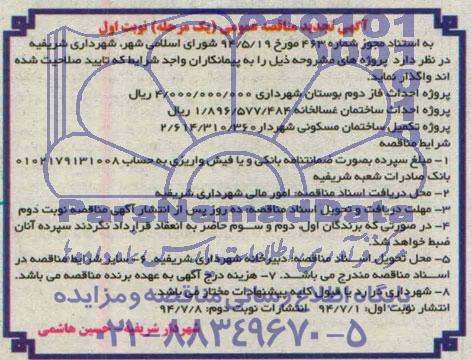 آگهی تجدید مناقصه عمومی (یک مرحله) نوبت اول
به استناد مجوز شماره ۴۶۳ مورخ ۹۴/۵/۱۹ شورای اسلامی شهر، شهرداری شریفیه
در نظر دارد پروژه های مشروحه ذیل را به پیمانکاران واجد شرایط که تایید صلاحیت شده
اند واگذار نماید.
پروژه احداث فاز دوم بوستان شهرداری ۴/۰۰۰/۰۰۰/۰۰۰ ریال
پروژه احداث ساختمان غسالخانه ۱/۸۹۶/۵۷۷/۴۸۴ ریال
پروژه تکمیل ساختمان مسکونی شهردار ۲/۶۱۴/۳۱۰/۳۶۰
شرایط مناقصه
۱- مبلغ سپرده بصورت ضمانتنامه بانکی و یا فیش واریزی به حساب ۰۱۰۲۱۷۹۱۳۱۰۰۸
بانک صادرات شعبه شریفیه
۲- محل دریافت اسناد مناقصه: امور مالی شهرداری شریفیه
۳- مهلت دریافت و تحویل اسناد مناقصه: ده روز پس از انتشار آگهی مناقصه نوبت دوم
۴- در صورتی که برندگان اول، دوم و سوم حاضر به انعقاد قرارداد نگردند سپرده آنان
ضبط خواهد شد.
۵- محل تحویل اسناد مناقصه: دبیرخانه شهرداری شریفیه ۶- سایر شرایط مناقصه در
اسناد مناقصه مندرج می باشد. ۷- هزینه درج آگهی به عهده برنده مناقصه می باشد.
۸- شهرداری در رد یا قبول کلیه پیشنهادات مختار می باشد.
انتشار نوبت اول: ۹۴/۷/۱ انتشارات نوبت دوم: ۹۴/۷/۸
شهردار شریفیه - حسین هاشمی
پایگاه اطلاع رسانی مناقصه و مزایده
۰۲۱-۸۸۳۴۹۶۷۰-۵